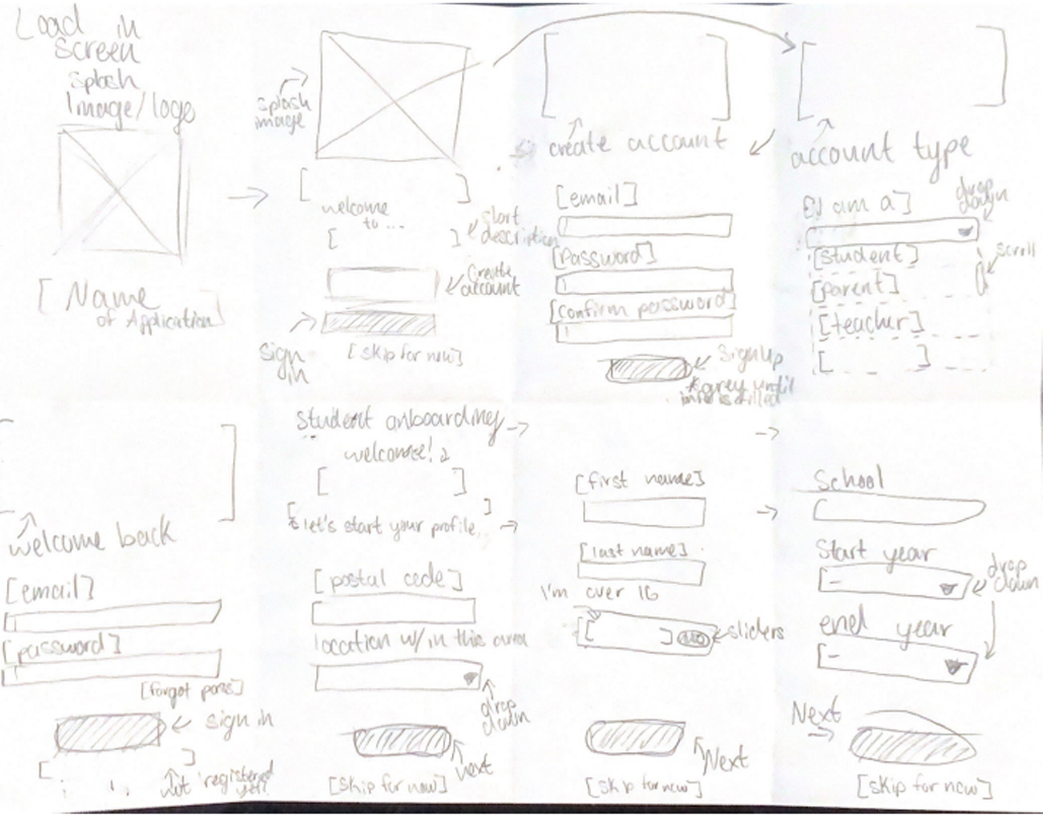 Load in
Screen
Splash
Image/logo
[Name
of Application]
splash
image
[ ]
welcome
to...
[ ]
short
description
Create
account
sign
in
[skip for now]
create account
[email]
[Password]
[confirm password]
Sign up
*grey until
info is filled
account type
[I am a]
drop
down
scroll
[student]
[parent]
[teacher]
[ ]
welcome back
[email]
[password]
[forgot pass]
sign in
not registered
yet
student onboarding
welcome!
[ ]
let's start your profile..
[postal code]
location w/in this area
drop
down
next
[skip for now]
[first name]
[last name]
I'm over 16
sliders
Next
[skip for now]
School
Start year
drop
down
end year
Next
[skip for now]